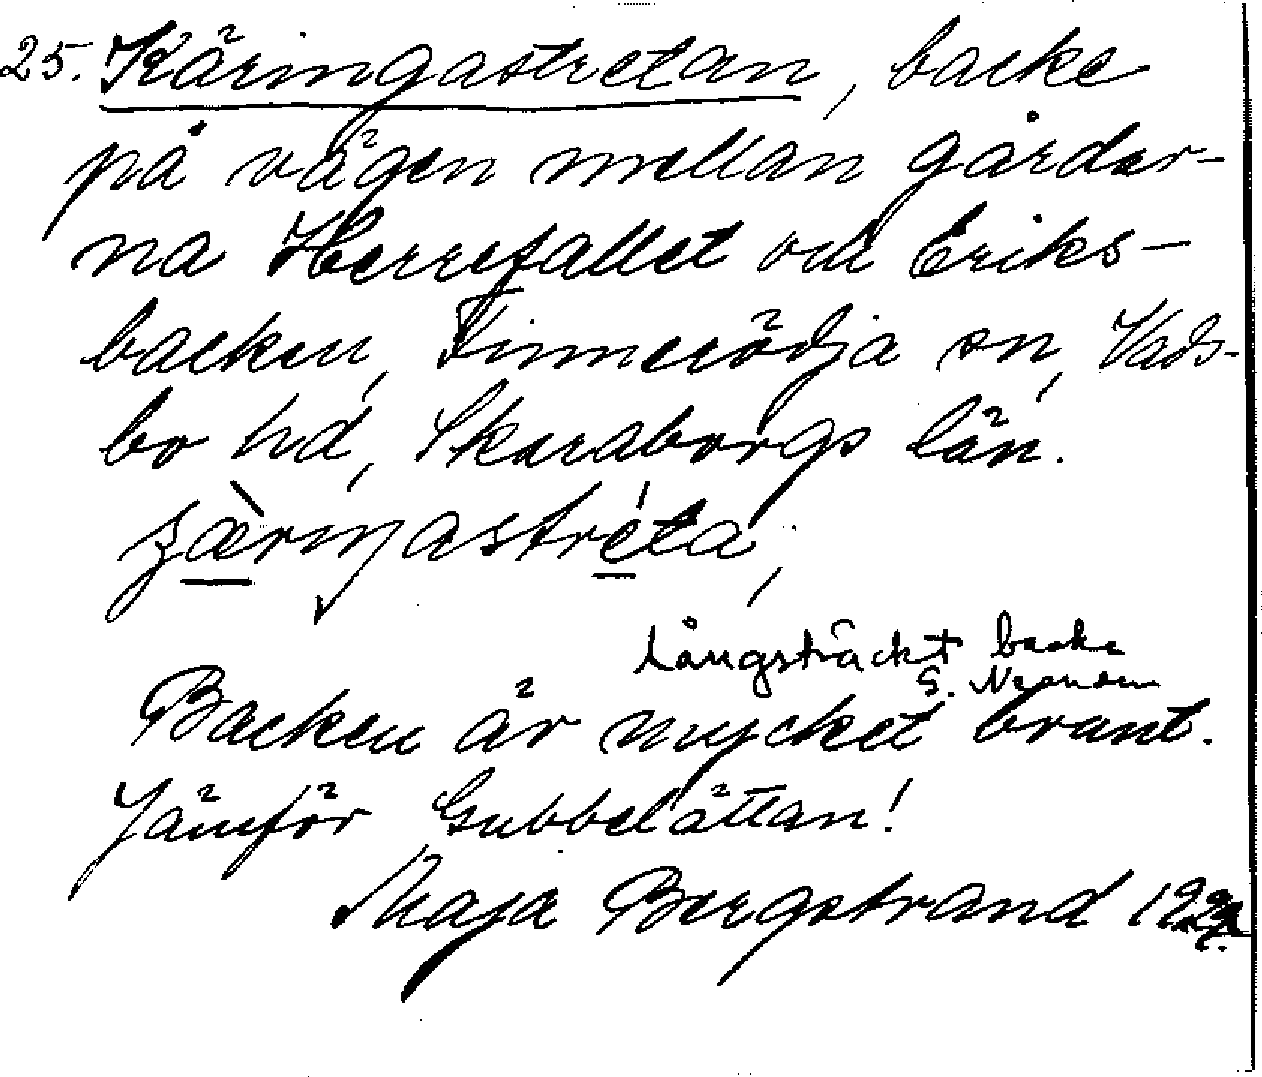 25. Käringastretan, backe
på vägen mellan gårdar-
na Herrefallet och Eriks-
backen, Finnerödja sn, Vads-
bo hd, Skaraborgs län.
Långsträckt backe
Backen är mycket brant.
Jämför Gubbelättan!
Maja Bergstrand